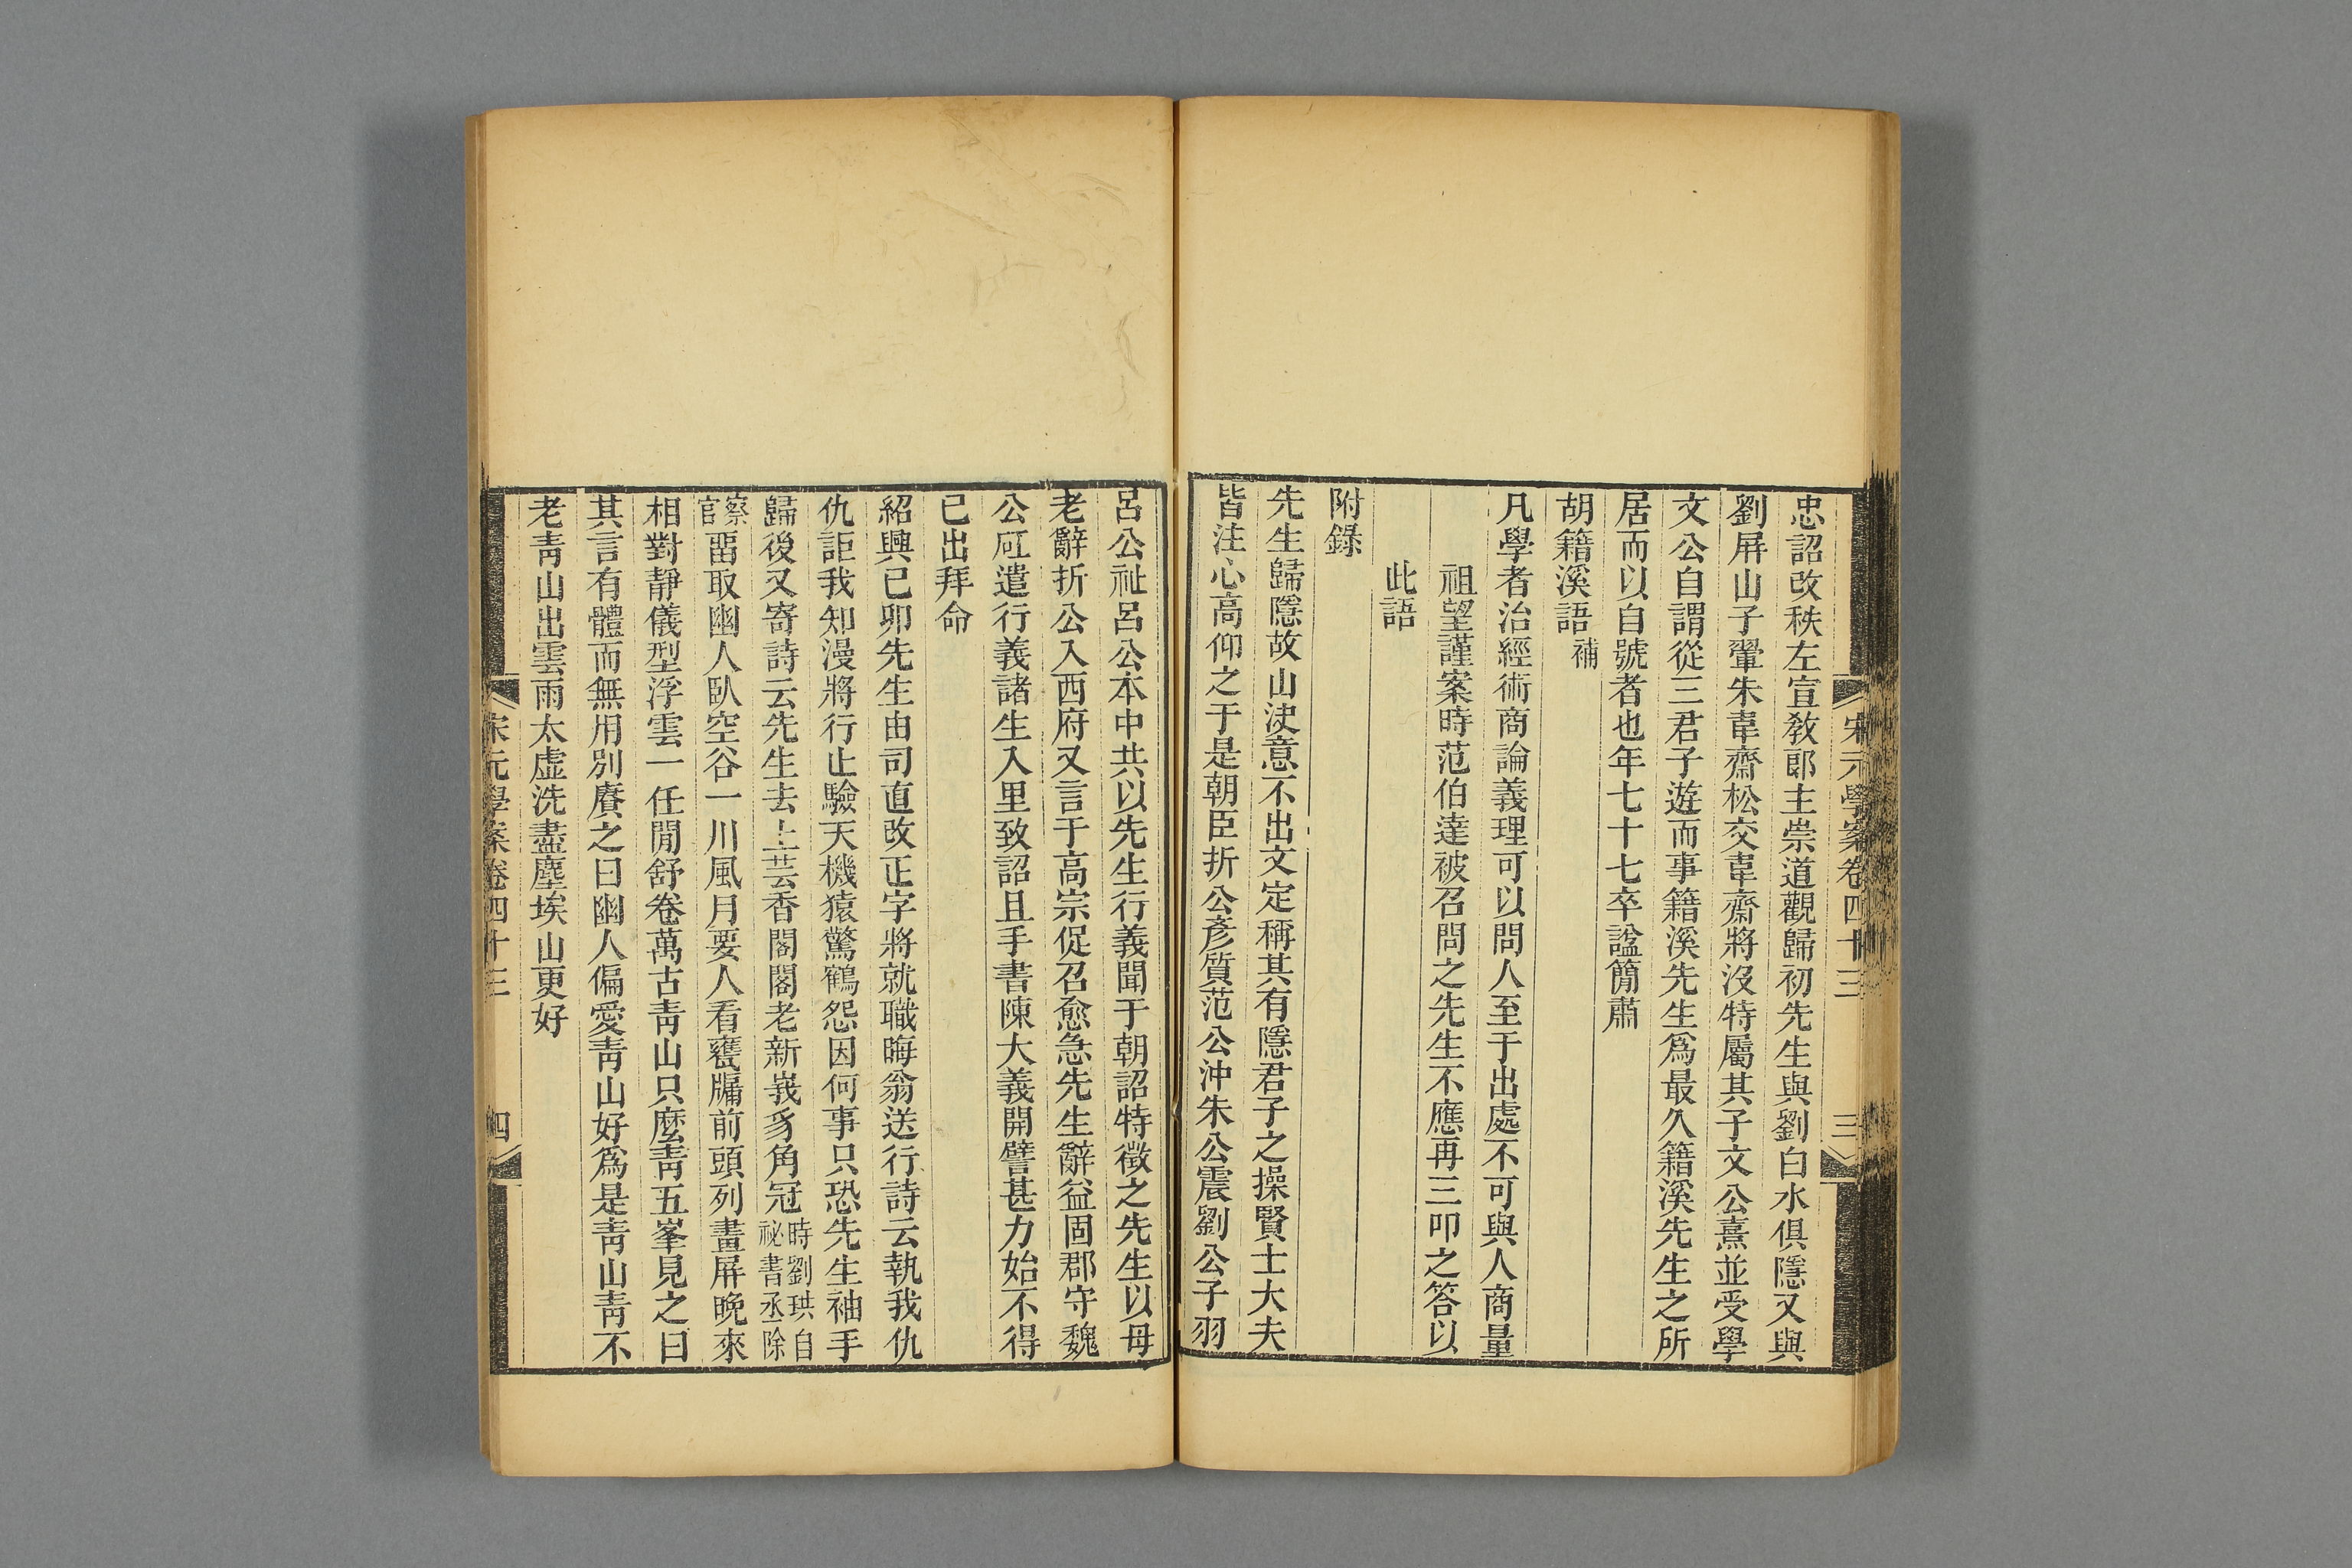 宋元學案卷四十三
三
忠詔改秩左宣敎郎主崇道觀歸初先生與劉白水俱隱又與
劉屏山子翬朱韋齋松交韋齋將沒特屬其子文公熹並受學
文公自謂從三君子遊而事籍溪先生爲最久籍溪先生之所
居而以自號者也年七十七卒諡簡肅
胡籍溪語補
凡學者治經術商論義理可以問人至于出處不可與人商量
祖望謹案時范伯達被召問之先生不應再三叩之答以
此語
附錄
先生歸隱故山決意不出文定稱其有隱君子之操賢士大夫
皆注心高仰之于是朝臣折公彥質范公沖朱公震劉公子羽
呂公祉呂公本中共以先生行義聞于朝詔特徵之先生以母
老辭折公入西府又言于高宗促召愈急先生辭益固郡守魏
公矼遣行義諸生入里致詔且手書陳大義開譬甚力始不得
已出拜命
紹興己卯先生由司直改正字將就職晦翁送行詩云執我仇
仇詎我知漫將行止驗天機猿驚鶴怨因何事只恐先生袖手
歸後又寄詩云先生去上芸香閣閣老新峩豸角冠時劉珙自祕書丞除
察官畱取幽人臥空谷一川風月要人看甕牖前頭列畫屏晩來
相對靜儀型浮雲一任閒舒卷萬古靑山只麼靑五峯見之曰
其言有體而無用別賡之曰幽人偏愛靑山好爲是靑山靑不
老靑山出雲雨太虛洗盡塵埃山更好
宋元學案卷四十三
四